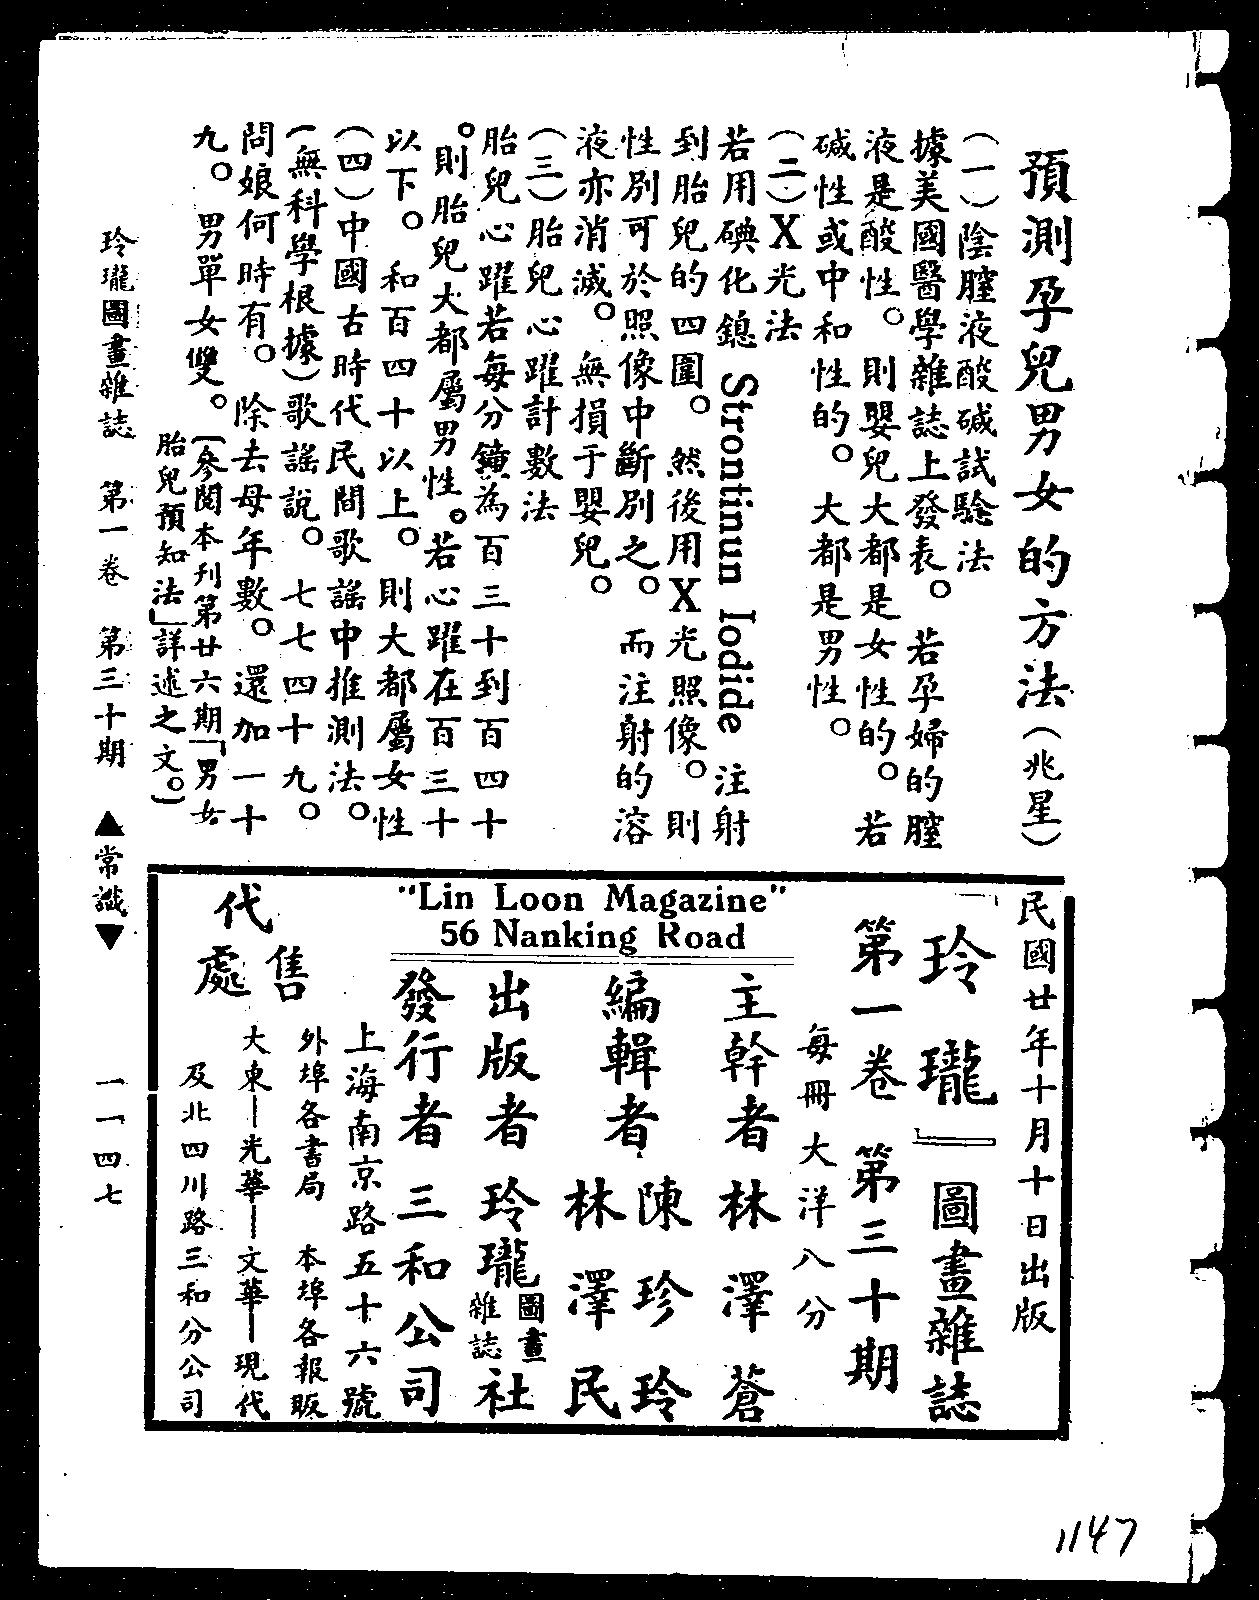 預測孕兒男女的方法（兆星）
（一）陰膣液酸碱試驗法
據美國醫學雜誌上發表。若孕婦的膣
液是酸性。則嬰兒大都是女性的。若
碱性或中和性的。大都是男性。
（二）X光法
若用碘化鎴 Strontinun Iodide 注射
到胎兒的四圍。然後用X光照像。則
性別可於照像中斷別之。而注射的溶
液亦消滅。無損于嬰兒。
（三）胎兒心躍計數法
胎兒心躍若每分鐘為百三十到百四十
。則胎兒大都屬男性。若心躍在百三十
以下。和百四十以上。則大都屬女性
（四）中國古時代民間歌謠中推測法。
（無科學根據）歌謠說。七七四十九。
問娘何時有。除去母年數。還加一十
九。男單女雙。（參閱本刊第廿六期「男女
胎兒預知法」詳述之文。）
玲瓏圖畫雜誌 第一卷 第三十期 ▲常識▼ 一一四七
民國廿年十月十日出版
「玲瓏」圖畫雜誌
第一卷 第三十期
每冊大洋八分
"Lin Loon Magazine"
56 Nanking Road
主幹者 林澤蒼
編輯者 陳珍玲
林澤民
出版者 玲瓏圖畫雜誌社
發行者 三和公司
上海南京路五十六號
代售處
外埠各書局 本埠各報販
大東—光華—文華—現代
及北四川路三和分公司
1147